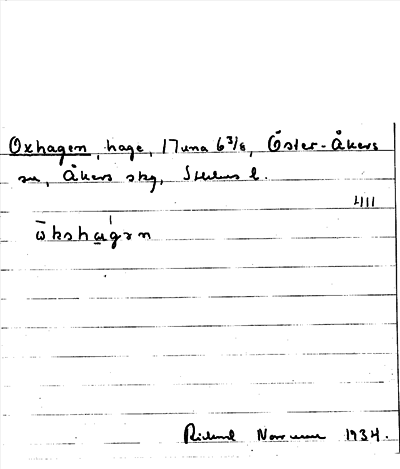 Oxhagen, hage, 17una 6 3/8, Öster-Åkers
sn, Åkers skg, Sthlms l.
4111
ω̄kshagən
Rickard 1934.